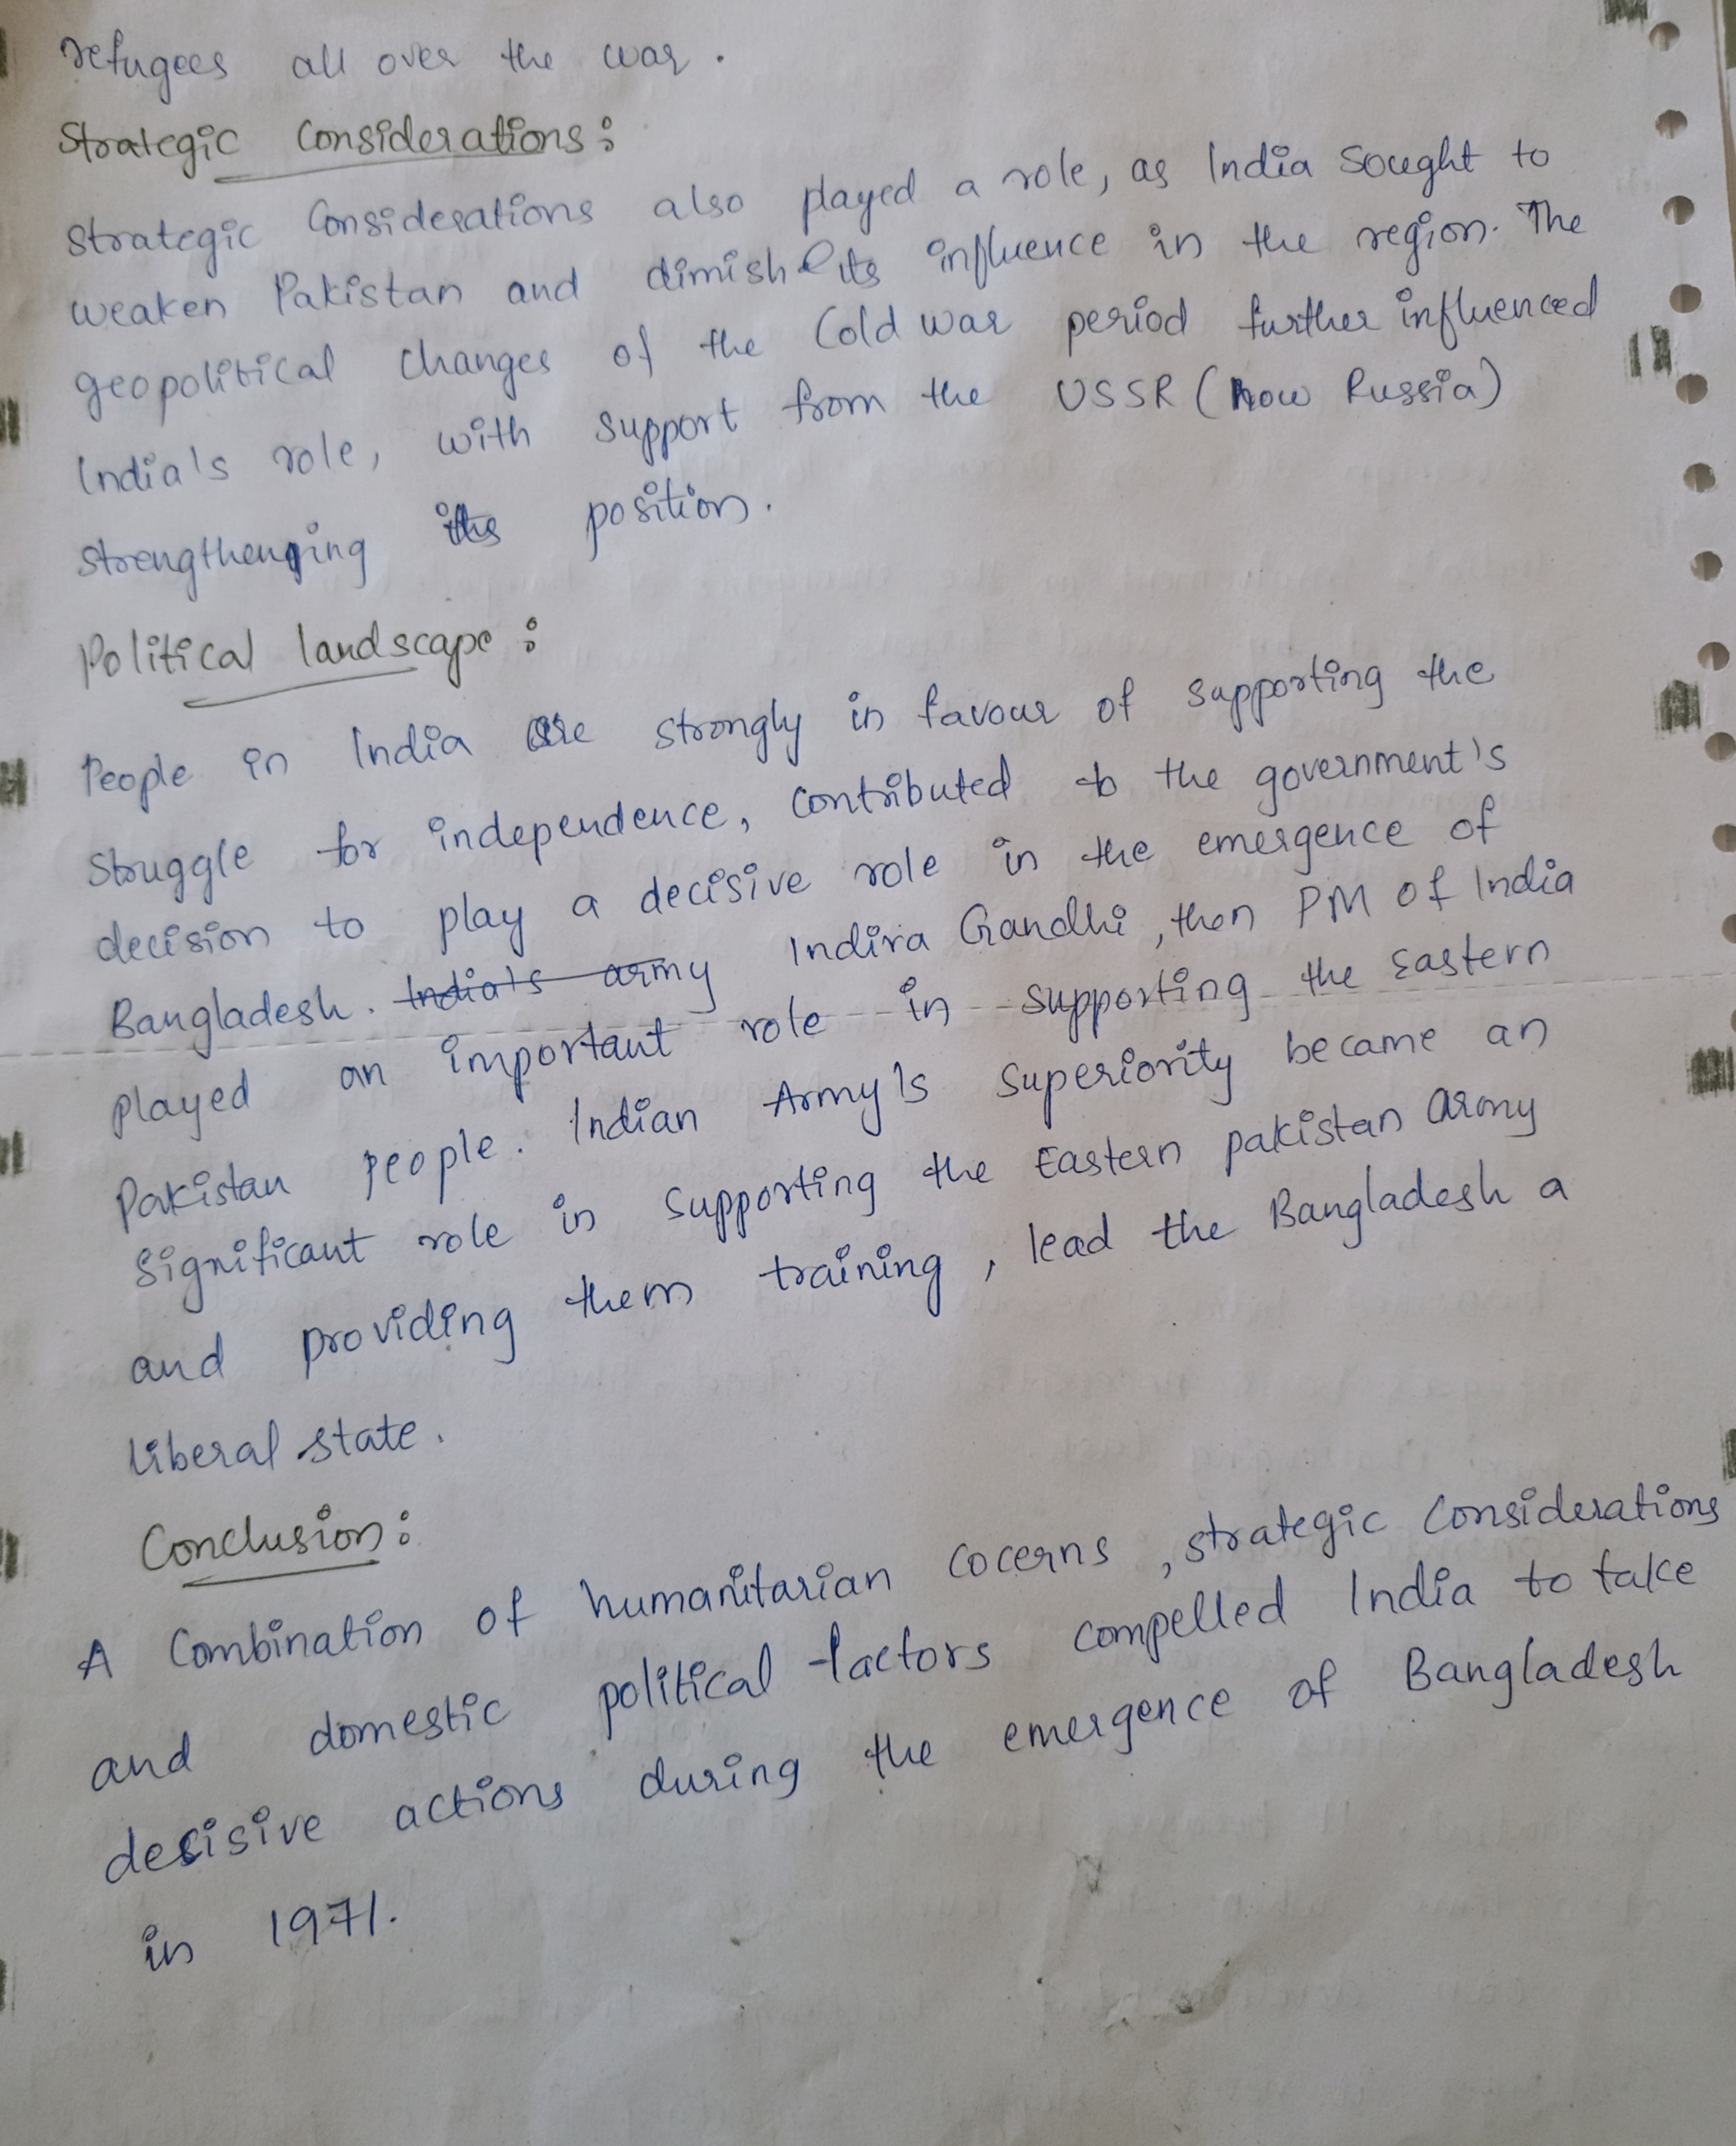 refugees all over the war.
Strategic Considerations:
Strategic Considerations also played a role, as India sought to
weaken Pakistan and dimish its influence in the region. The
geopolitical changes of the Cold war period further influenced
India's role, with support from the USSR (now Russia)
strengthenging its position.
Political landscape:
People in India are strongly in favour of supporting the
struggle for independence, contributed to the government's
decision to play a decisive role in the emergence of
Bangladesh. India's army Indira Gandhi, then PM of India
played an important role in supporting the Eastern
Pakistan people. Indian Army's superiority became an
significant role in supporting the Eastern pakistan army
and providing them training, lead the Bangladesh a
liberal state.
Conclusion:
A Combination of humanitarian cocerns, strategic Considerations
and domestic political factors compelled India to take
decisive actions during the emergence of Bangladesh
in 1971.